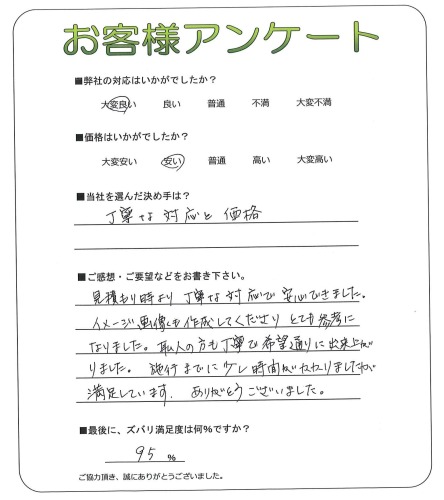 お客様アンケート
■弊社の対応はいかがでしたか？
大変良い 良い 普通 不満 大変不満
■価格はいかがでしたか？
大変安い 安い 普通 高い 大変高い
■当社を選んだ決め手は？
丁寧な対応と価格
■ご感想・ご要望などをお書き下さい。
見積もり時より丁寧な対応で安心できました。
イメージ画像も作成してくださりとても参考に
なりました。職人の方も丁寧で希望通りに出来上が
りました。施行までに少し時間がかかりましたが
満足しています。ありがとうございました。
■最後に、ズバリ満足度は何%ですか？
95 %
ご協力頂き、誠にありがとうございました。